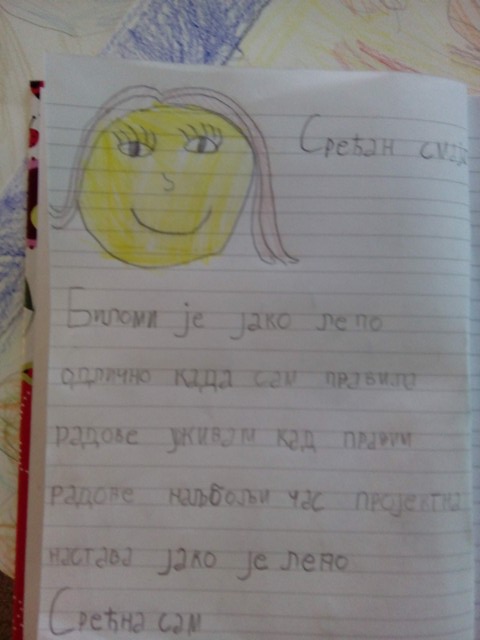 Срећан смајл
Било ми је јако лепо
одлично када сам правила
радове уживам кад правим
радове најбољи час пројектна
настава јако је лепо
Срећна сам